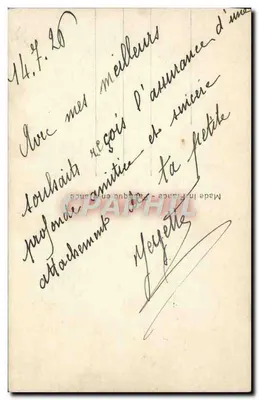 14.7.26
Avec mes meilleurs
souhaits reçois l'assurance d'une
profonde amitiée et sincère
attachement de ta petite
Made in France - Fabriqué en France
CPAPHIL